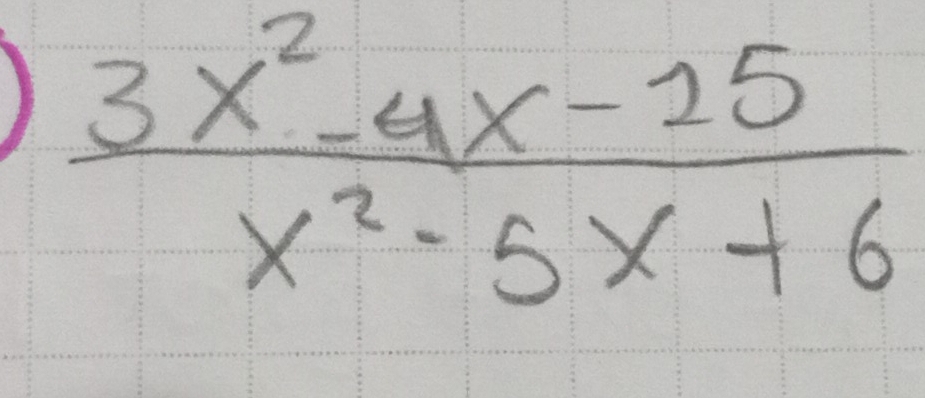 3x² - 4x - 15
x² - 5x + 6